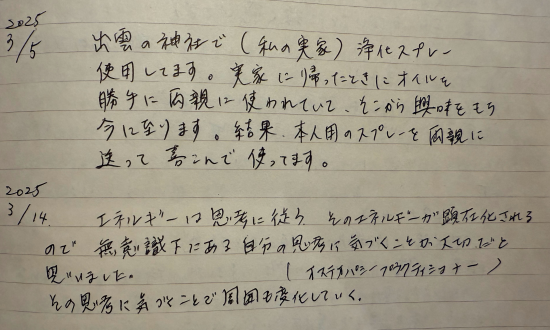 2025
3/5 出雲の神社で(私の実家)浄化スプレー
使用してます。実家に帰ったときにオイルを
勝手に両親に使われていて、そこから興味をもち
今に至ります。結果、本人用のスプレーを両親に
送って喜こんで使ってます。
2025
3/14. エネルギーは思考に従う そのエネルギーが顕在化される
ので 無意識下にある自分の思考に気づくことが大切だと
思いました。 (オステオパシープラクティショナー)
その思考に気づくことで周囲も変化していく。